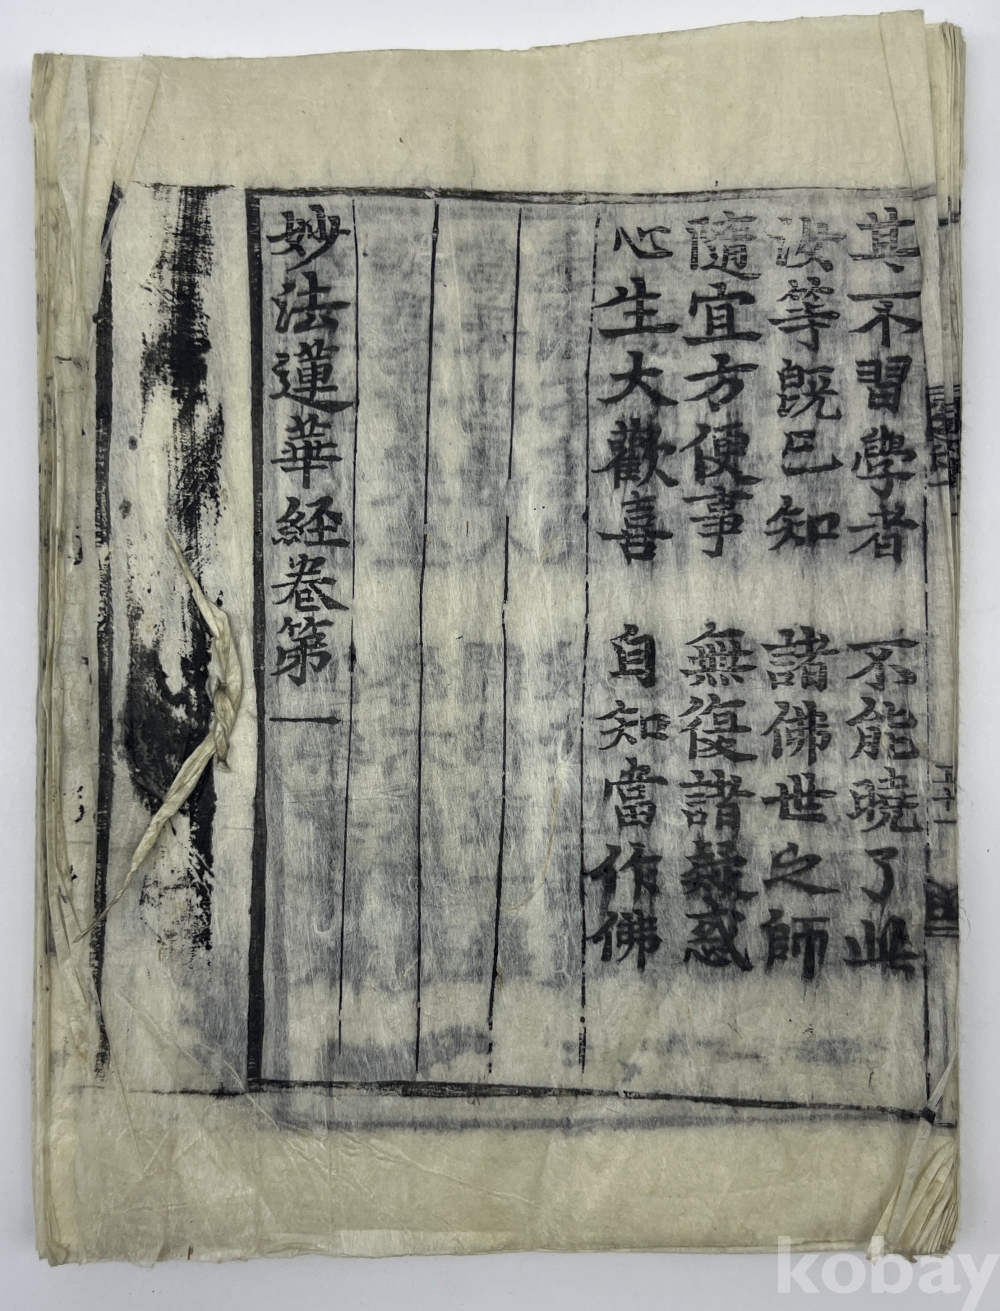 其不習學者 不能曉了此
汝等既已知 諸佛世之師
隨宜方便事 無復諸疑惑
心生大歡喜 自知當作佛
妙法蓮華經卷第一
kobay